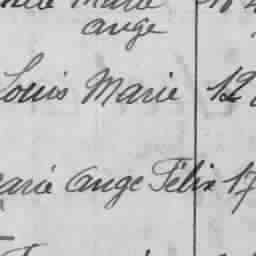 Marie
ange
Louis Marie 12
arie Ange Félix 17